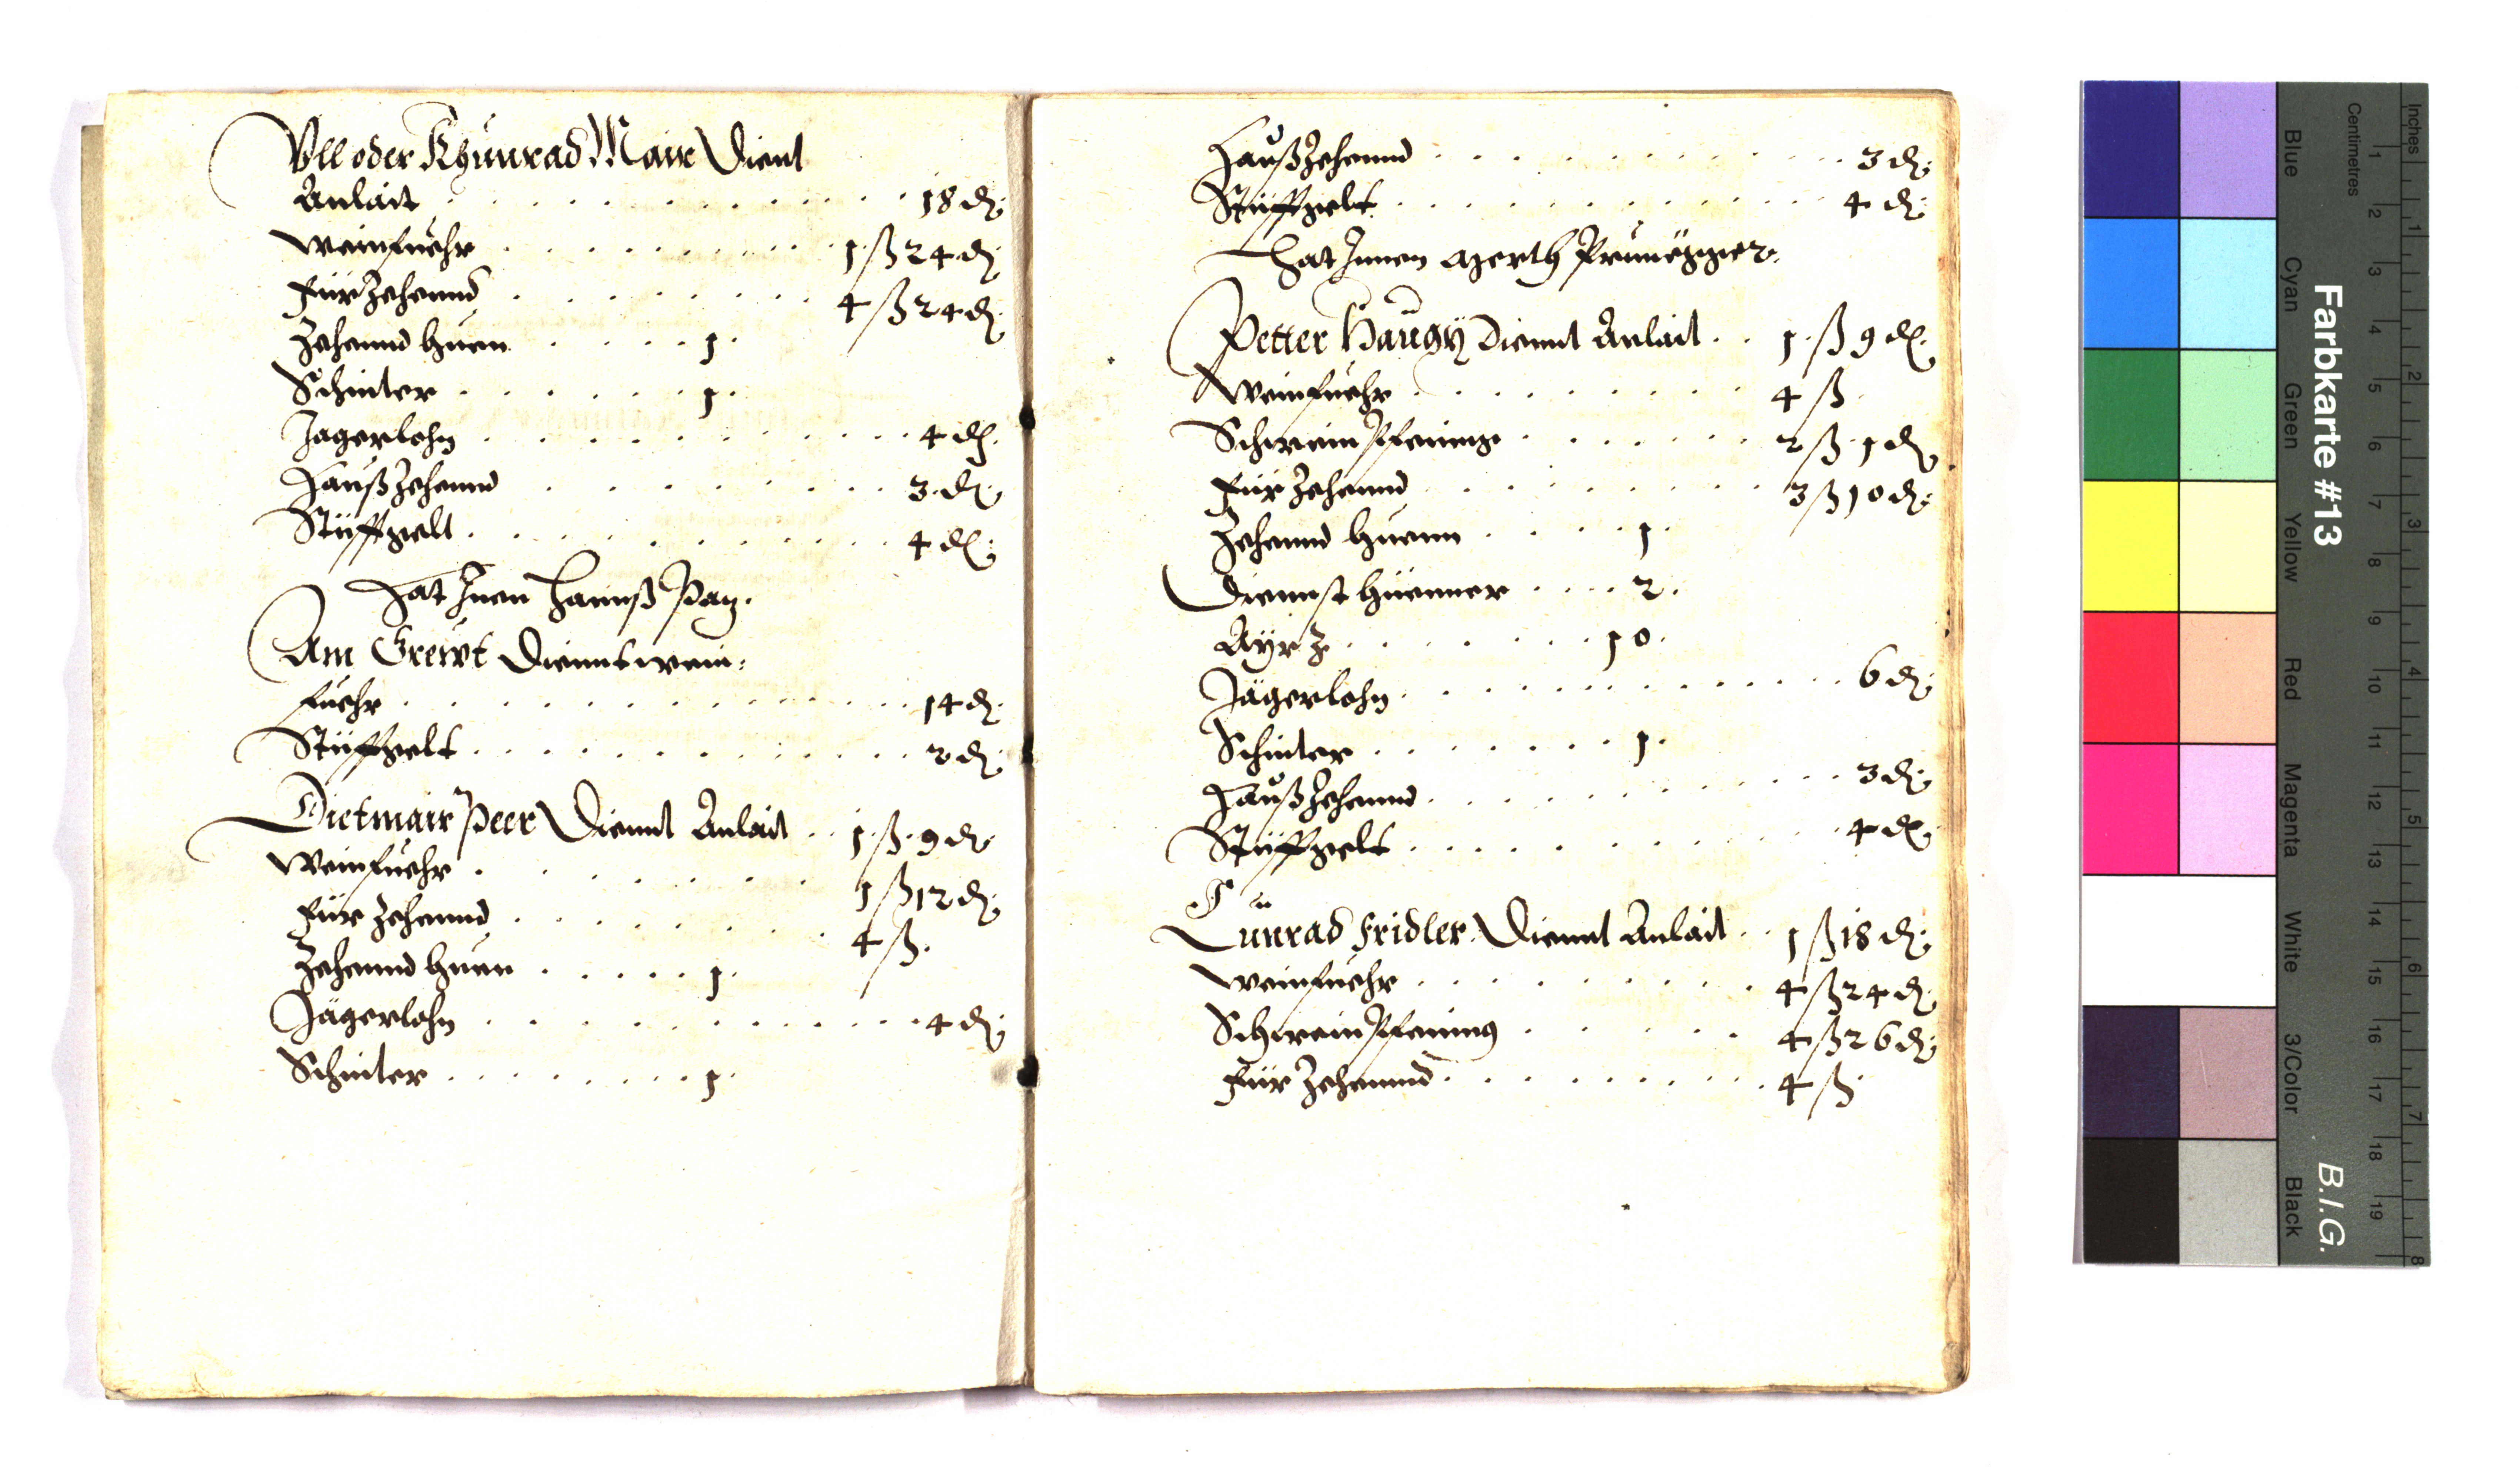 Vll oder Khunrad Mair Dient
Anlait . . . . . . . . . 18 d.
Weinfuehr . . . . . . . . 1 ß 24 d.
für Zehennd . . . . . . . 4 ß 24 d.
Zehennd Huen . . . . 1.
Schinter . . . . . . 1.
Jagerlohn . . . . . . . . . 4 d.
Haußzehennd . . . . . . . 3 d.
Stüfftgelt . . . . . . . . . 4 d.
Hat Inen Hannß
Am Greüt Diennt wein:
fuehr . . . . . . . . . . 14 d.
Stüfftgelt . . . . . . . . . 2 d.
Dietmair Peer Diennt Anlait . . 1 ß 9 d.
Weinfuehr . . . . . . . 1 ß 12 d.
für Zehennd . . . . . . . 4 ß.
Zehennd Huen . . . . . 1.
Jägerlohn . . . . . . . . . 4 d.
Schinter . . . . . . . . 1.
Haußzehennd . . . . . . . . 3 d.
Stüfftgelt . . . . . . . . . 4 d.
Hat Innen
Petter Haugÿ Diennt Anlait . . 1 ß 9 d.
Weinfuehr . . . . . . . . 4 ß
Schwein Pfening . . . . . . 2 ß 1 d.
für Zehennd . . . . . . . 3 ß 10 d.
Zehennd Huenn . . . . 1.
Diennst Hüenner . . . . 2.
Aÿr Z . . . . . . . 10.
Jägerlohn . . . . . . . . . 6 d.
Schinter . . . . . . . 1.
Haußzehennd . . . . . . . . 3 d.
Stüfftgelt . . . . . . . . . 4 d.
Cunrad Fridler Diennt Anlait . . 1 ß 18 d.
Weinfuehr . . . . . . . . 4 ß 24 d.
Schwein Pfening . . . . . 4 ß 26 d.
für Zehennd . . . . . . . . 4 ß
Farbkarte #13
B.I.G.
Inches 1 2 3 4 5 6 7 8
Centimetres 1 2 3 4 5 6 7 8 9 10 11 12 13 14 15 16 17 18 19
Blue
Cyan
Green
Yellow
Red
Magenta
White
3/Color
Black